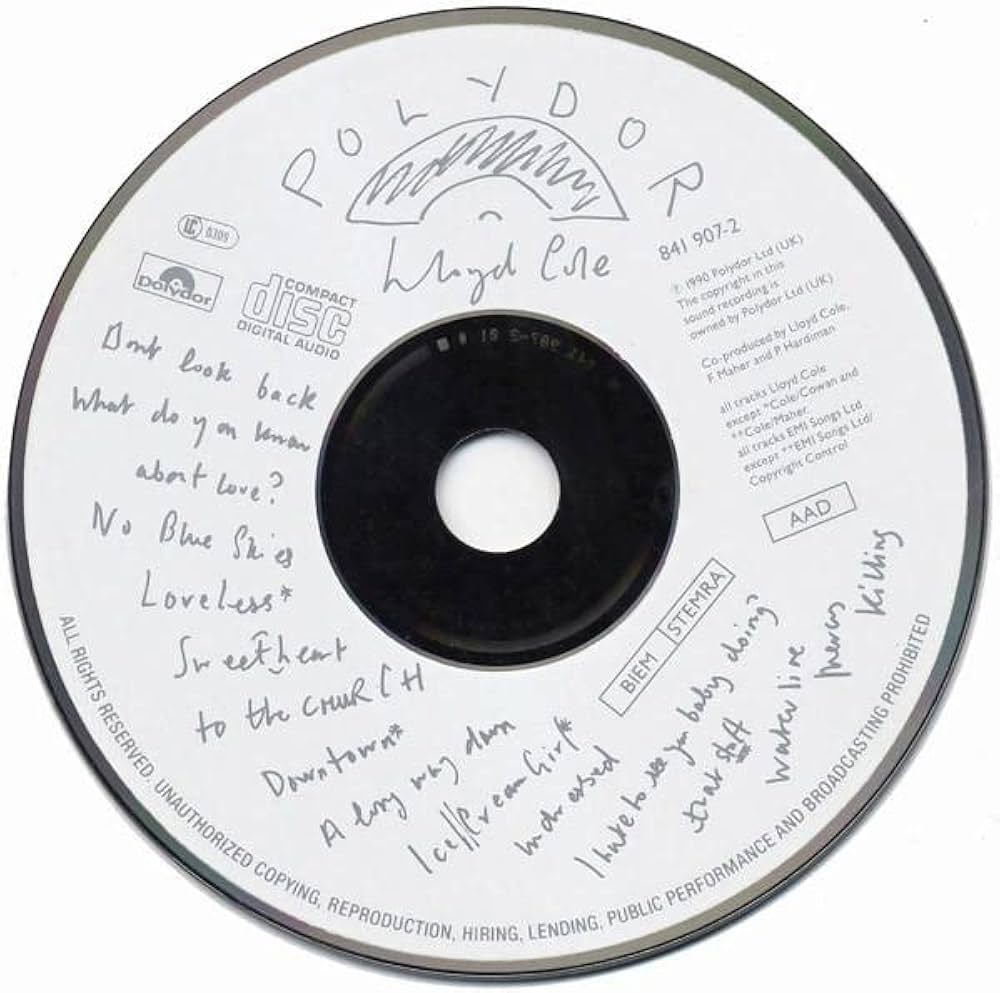 POLYDOR
Lloyd Cole
LC 0309
Polydor
COMPACT
disc
DIGITAL AUDIO
841 907-2
℗ 1990 Polydor Ltd (UK)
The copyright in this
sound recording is
owned by Polydor Ltd (UK)
Co-produced by Lloyd Cole,
F. Maher and P. Hardiman
all tracks Lloyd Cole
except *Cole/Cowan and
**Cole/Maher
all tracks EMI Songs Ltd
except **EMI Songs Ltd/
Copyright Control
AAD
BIEM STEMRA
Dont look back
What do you know
about love?
No Blue Skies
Loveless*
Sweetheart
to the CHURCH
Downtown*
A long way down
Ice//Cream Girl*
undressed
I hate to see you baby doing
that stuff
waterline
mercy
killing
ALL RIGHTS RESERVED. UNAUTHORIZED COPYING, REPRODUCTION, HIRING, LENDING, PUBLIC PERFORMANCE AND BROADCASTING PROHIBITED